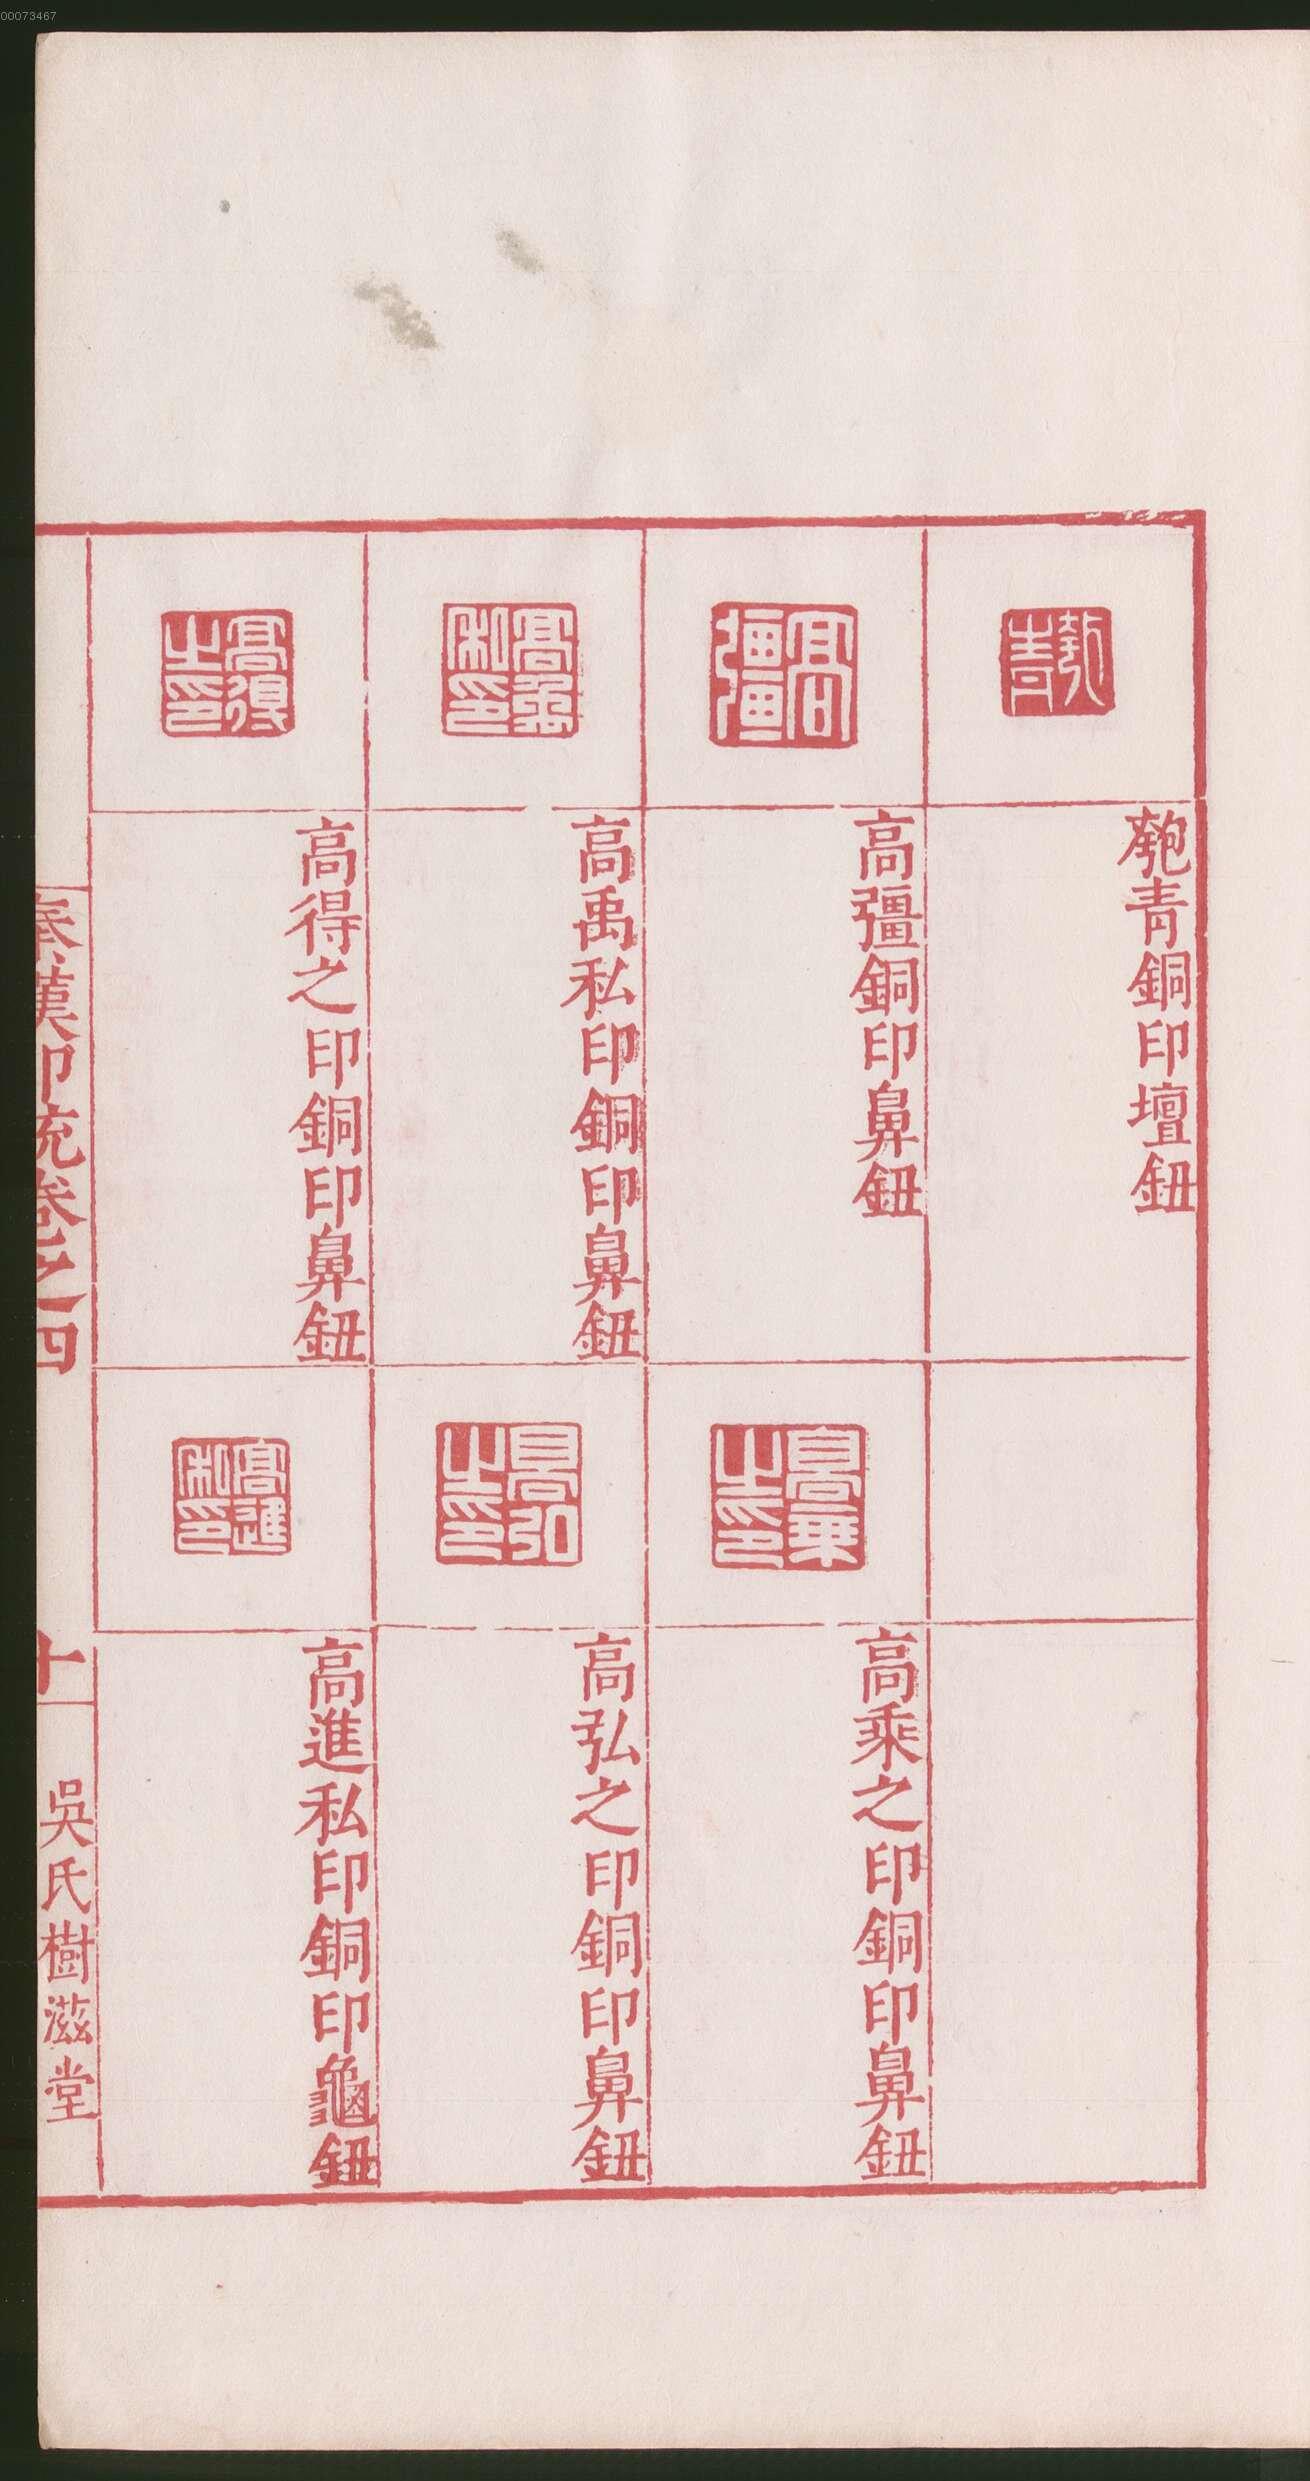 00073467
匏青銅印壇鈕
高彊銅印鼻鈕
高禹私印銅印鼻鈕
高得之印銅印鼻鈕
高乘之印銅印鼻鈕
高弘之印銅印鼻鈕
高進私印銅印龜鈕
高彊
高禹私印
高得之印
高乘之印
高弘之印
高進私印
秦漢印統卷之四
十
吳氏樹滋堂